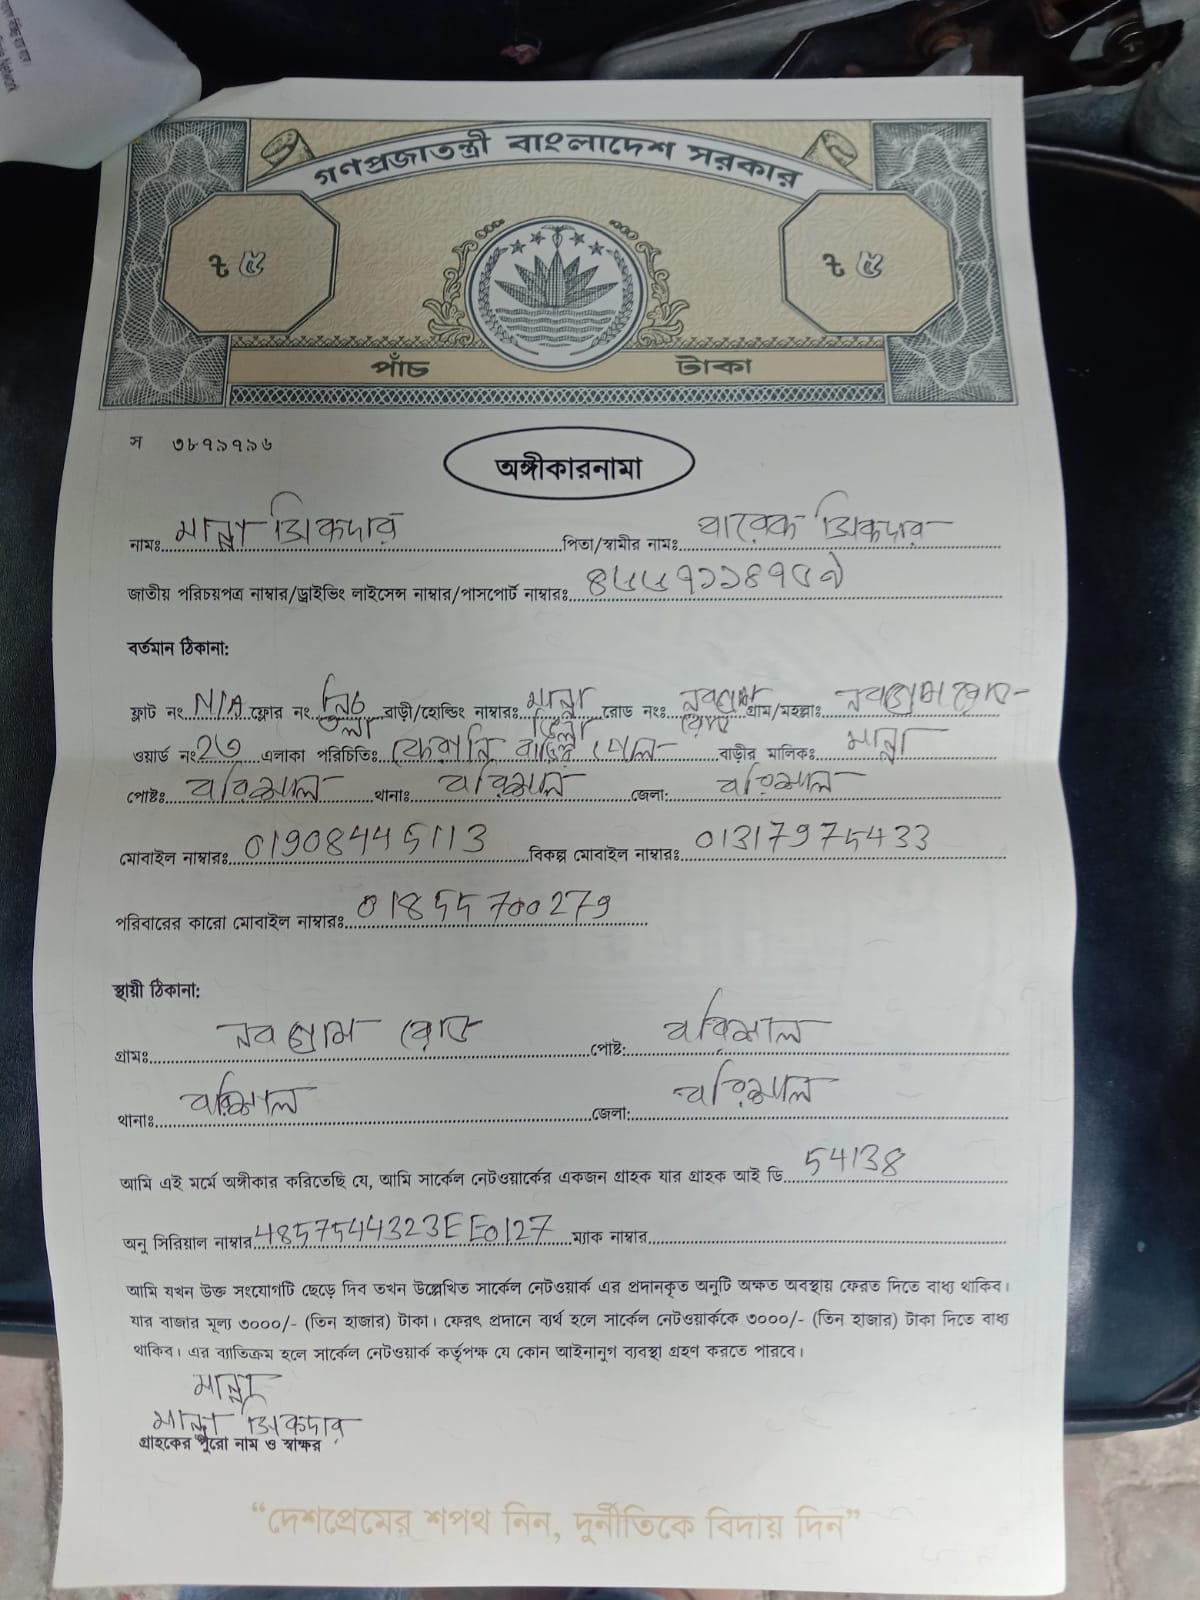 গণপ্রজাতন্ত্রী বাংলাদেশ সরকার
৳ ৫ ৳ ৫
পাঁচ টাকা
স ৩৮৭১৭১৬
অঙ্গীকারনামা
নামঃ মান্না সিকদার পিতা/স্বামীর নামঃ বারেক সিকদার
জাতীয় পরিচয়পত্র নাম্বার/ড্রাইভিং লাইসেন্স নাম্বার/পাসপোর্ট নাম্বারঃ
বর্তমান ঠিকানা:
ফ্লাট নং N/A ফ্লোর নং নিচ তলা বাড়ী/হোল্ডিং নাম্বারঃ মান্না ভিলা রোড নংঃ নবগ্রাম রোড গ্রাম/মহল্লাঃ নবগ্রাম রোড
ওয়ার্ড নং 23 এলাকা পরিচিতিঃ বাড়ির পোল বাড়ীর মালিকঃ মান্না
পোষ্টঃ বরিশাল থানাঃ বরিশাল জেলা: বরিশাল
মোবাইল নাম্বারঃ 01908445113 বিকল্প মোবাইল নাম্বারঃ 01317975433
পরিবারের কারো মোবাইল নাম্বারঃ 01855700279
স্থায়ী ঠিকানা:
গ্রামঃ নবগ্রাম রোড পোষ্ট: বরিশাল
থানাঃ বরিশাল জেলা: বরিশাল
আমি এই মর্মে অঙ্গীকার করিতেছি যে, আমি সার্কেল নেটওয়ার্কের একজন গ্রাহক যার গ্রাহক আই ডি 54138
অনু সিরিয়াল নাম্বার 4857544323EEO127 ম্যাক নাম্বার
আমি যখন উক্ত সংযোগটি ছেড়ে দিব তখন উল্লেখিত সার্কেল নেটওয়ার্ক এর প্রদানকৃত অনুটি অক্ষত অবস্থায় ফেরত দিতে বাধ্য থাকিব।
যার বাজার মূল্য ৩০০০/- (তিন হাজার) টাকা। ফেরৎ প্রদানে ব্যর্থ হলে সার্কেল নেটওয়ার্ককে ৩০০০/- (তিন হাজার) টাকা দিতে বাধ্য
থাকিব। এর ব্যাতিক্রম হলে সার্কেল নেটওয়ার্ক কর্তৃপক্ষ যে কোন আইনানুগ ব্যবস্থা গ্রহণ করতে পারবে।
মান্না
মান্না সিকদার
গ্রাহকের পুরো নাম ও স্বাক্ষর
“দেশপ্রেমের শপথ নিন, দুর্নীতিকে বিদায় দিন”